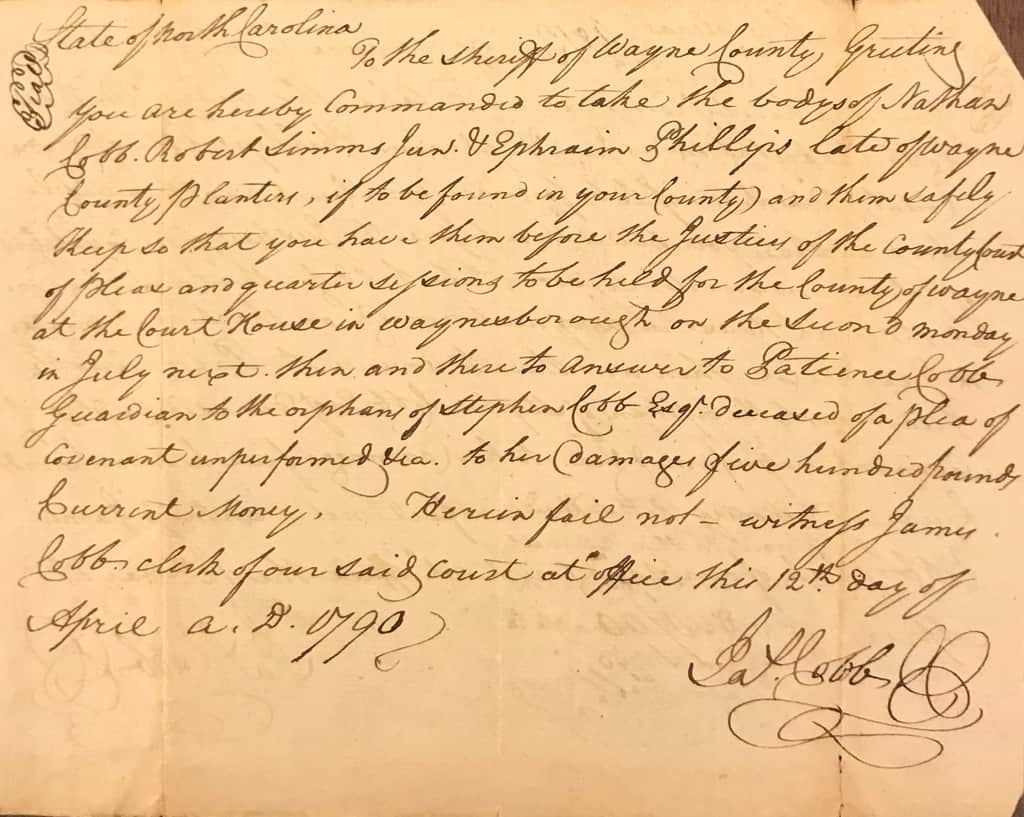 State of North Carolina
Seal
To the Sheriff of Wayne County, Greeting
you are hereby Commanded to take the bodys of Nathan
Cobb. Robert Simms Jun. & Ephraim Phillips late of Wayne
County, Planters, if to be found in your County) and them safely
Keep so that you have them before the Justices of the County Court
of Pleas and quarter sessions to be held for the County of Wayne
at the Court House in Waynesborough on the second monday
in July next. then and there to answer to Patience Cobb
Guardian to the orphans of Stephen Cobb Esqr. deceased of a plea of
Covenant unperformed &ca. to her damages five hundred pounds
Current Money. Herein fail not - witness James
Cobb clerk of our said Court at office this 12th. day of
April a. D. 1790
Jas. Cobb CC